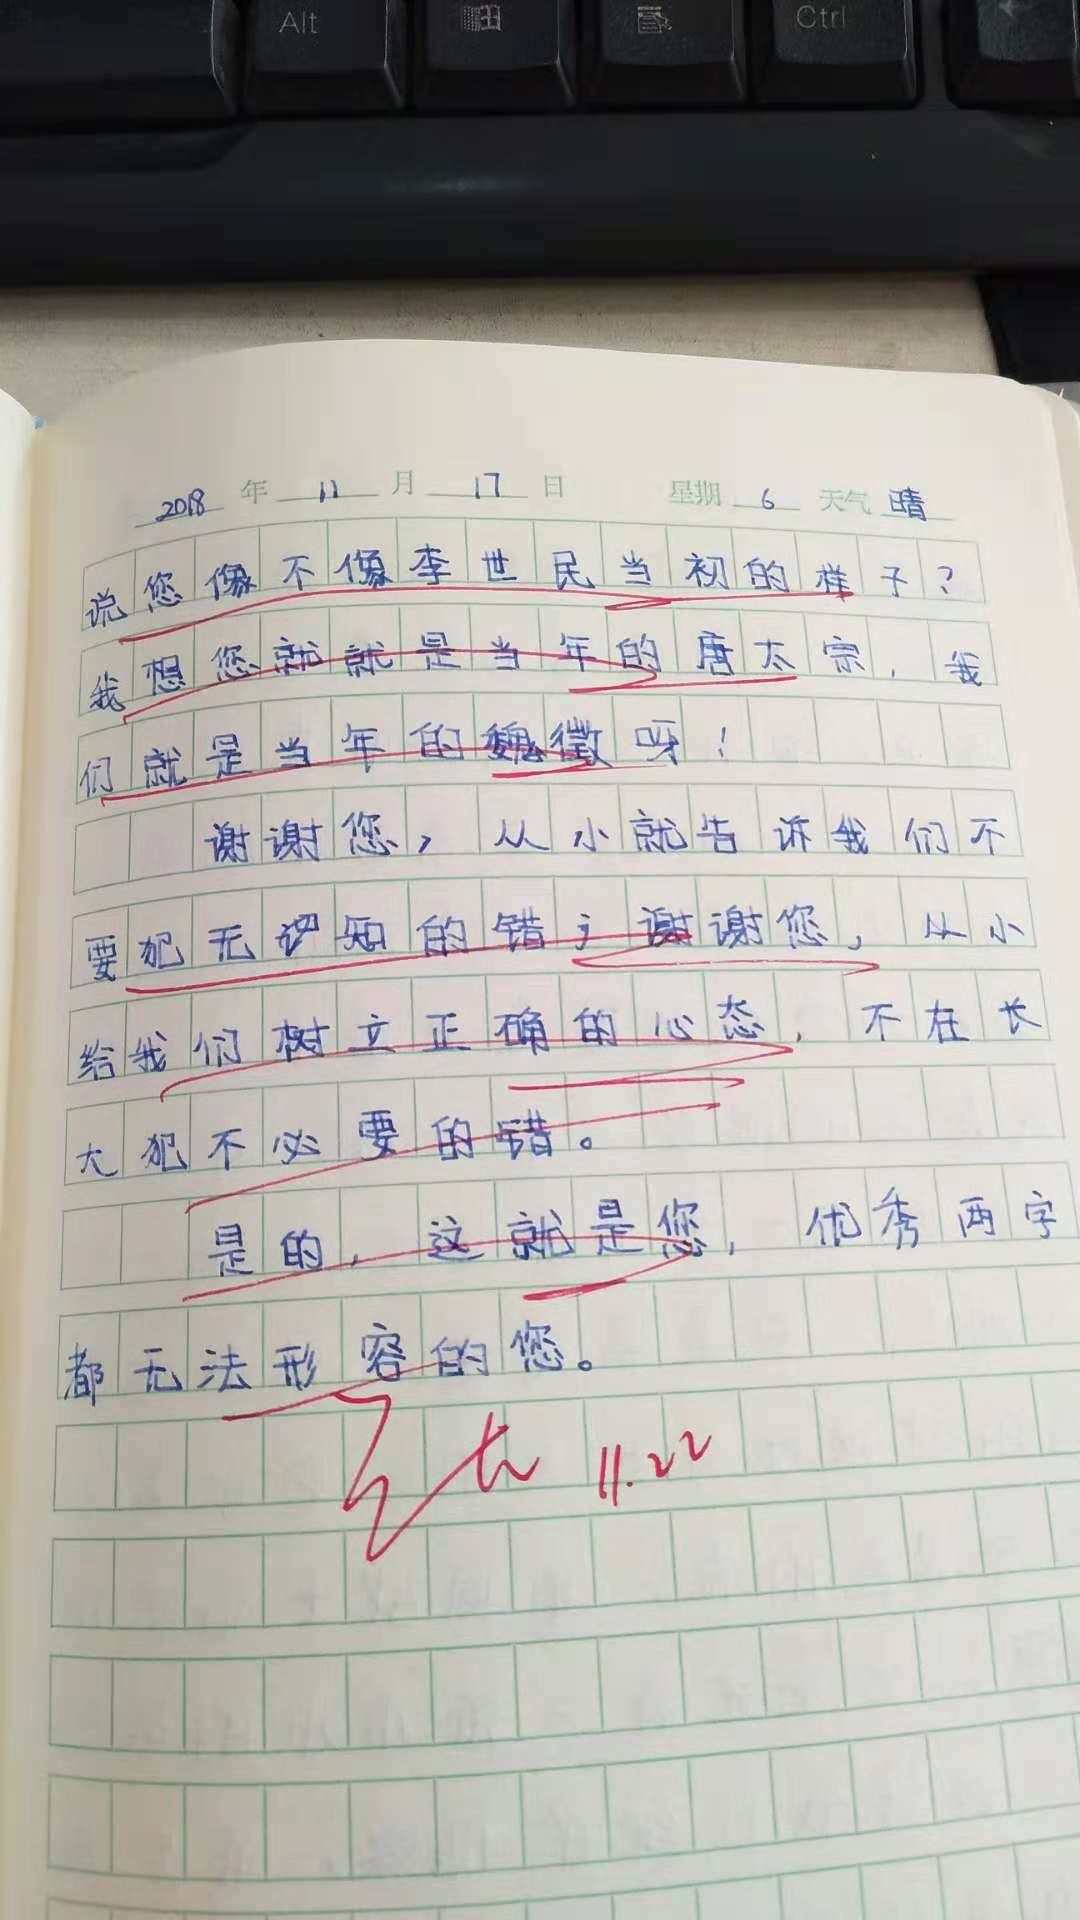 Alt
Ctrl
2018 年 11 月 17 日 星期 6 天气 晴
说您像不像李世民当初的样子?
我想您就就是当年的唐太宗,我
们就是当年的魏徵呀!
谢谢您,从小就告诉我们不
要犯无知的错;谢谢您,从小
给我们树立正确的心态,不在长
大犯不必要的错。
是的,这就是您,优秀两字
都无法形容的您。
11.22